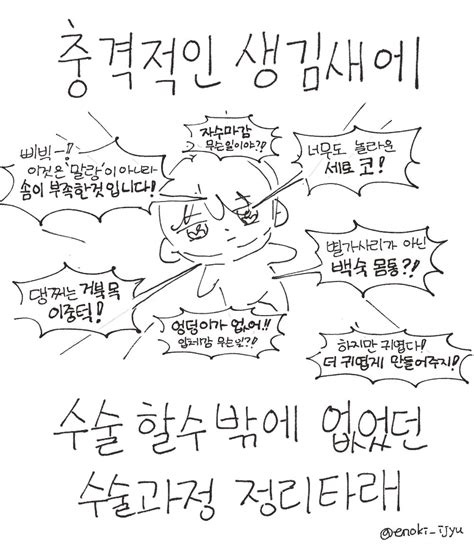 충격적인 생김새에
자수마감
무슨일이야?!
삐빅-!
이것은 '말랑'이 아니라
솜이 부족한것 입니다!
너무도 놀라운
세모 코!
별가사리가 아닌
백숙 몸통?!
댕쩌는 거북목
이중턱!
엉덩이가 없어!!
입체감 무슨일?!
하지만 귀엽다!
더 귀엽게 만들어주지!
수술 할수밖에 없었던
수술과정 정리타래
@enoki_ijyu